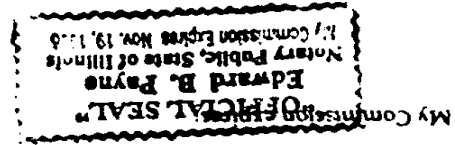 My Commission Expires
"OFFICIAL SEAL"
Edward B. Payne
Notary Public, State of Illinois
My Commission Expires Nov. 19,